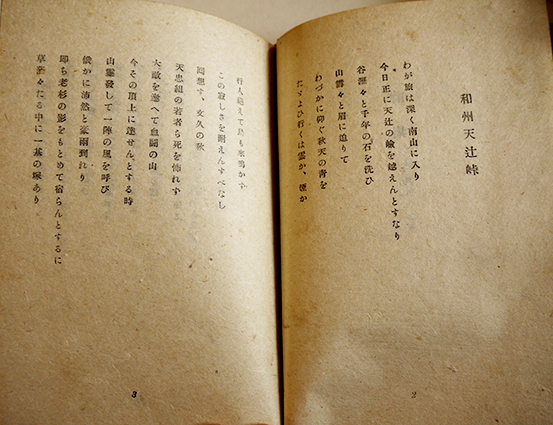 和州天辻峠
わが旅は深く南山に入り
今日正に天辻の嶮を越えんとすなり
谷深々と千年の石を洗ひ
山雲々と眉に迫りて
わづかに仰ぐ秋天の青を
たゞよひ行くは雲か、煙か
2
行人絶えて鳥も亦鳴かず
この寂しさを耐えんすべなし
回想す、文久の秋
天忠組の若者ら死を怖れず
大敵を邀へて血闘の山
今その頂上に達せんとする時
山靈發して一陣の風を呼び
俄かに沛然と豪雨到れり
即ち老杉の影をもとめて宿らんとするに
草茫々たる中に一基の塚あり
3